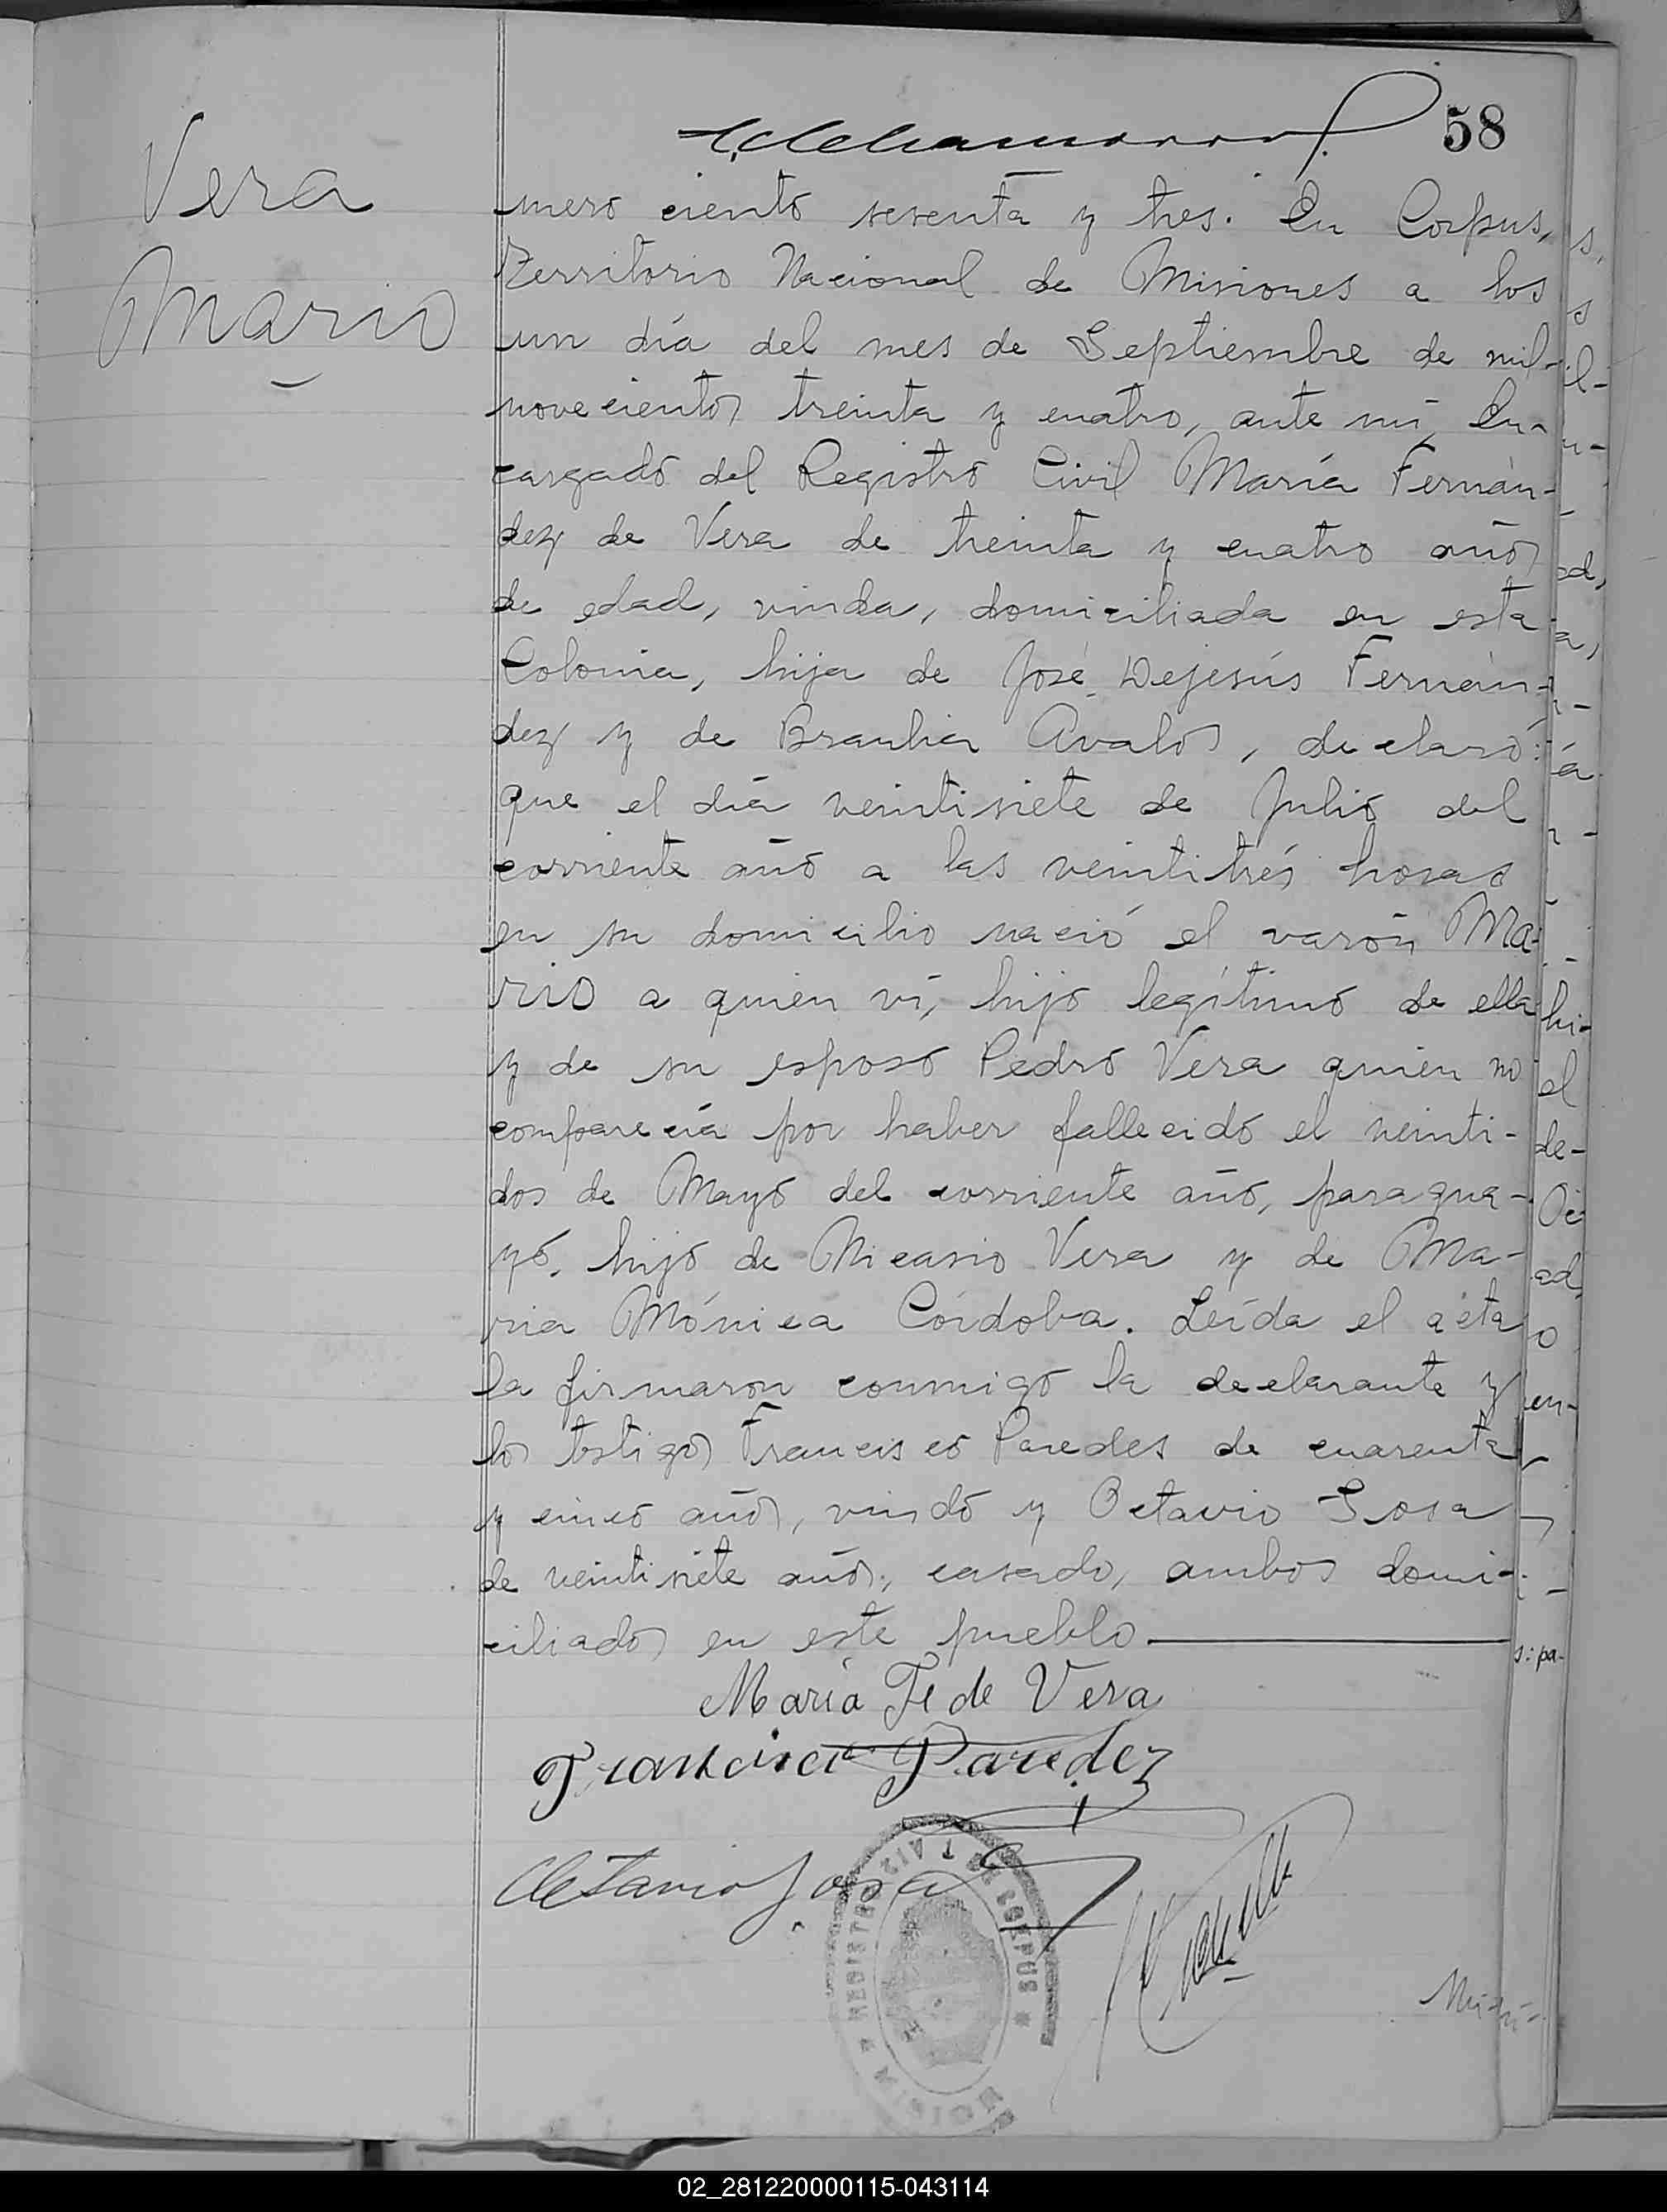 58
Vera
Mario
mero ciento sesenta y tres. En Corpus,
Territorio Nacional de Misiones a los
un día del mes de Septiembre de mil
novecientos treinta y cuatro, ante mí, En-
cargado del Registro Civil María Fernán-
dez de Vera de treinta y cuatro años
de edad, viuda, domiciliada en esta
Colonia, hija de José Dejesús Fernán-
dez y de Braulia Avalos, declaró:
que el día veintisiete de Julio del
corriente año a las veintitrés horas
en su domicilio nació el varón Ma-
rio a quien ví, hijo legítimo de ella
y de su esposo Pedro Vera quien no
comparecía por haber fallecido el veinti-
dos de Mayo del corriente año, paragua-
yo, hijo de Nicasio Vera y de Ma-
ria Mónica Córdoba. Leída el acta
la firmaron conmigo la declarante y
los testigos Francisco Paredes de cuarenta
y cinco años, viudo y Octavio Sosa
de veintisiete años, casado, ambos domi-
ciliados en este pueblo
María F. de Vera
Francisco Paredez
Octavio Sosa
REGISTRO CIVIL DE CORPUS
02_281220000115-043114